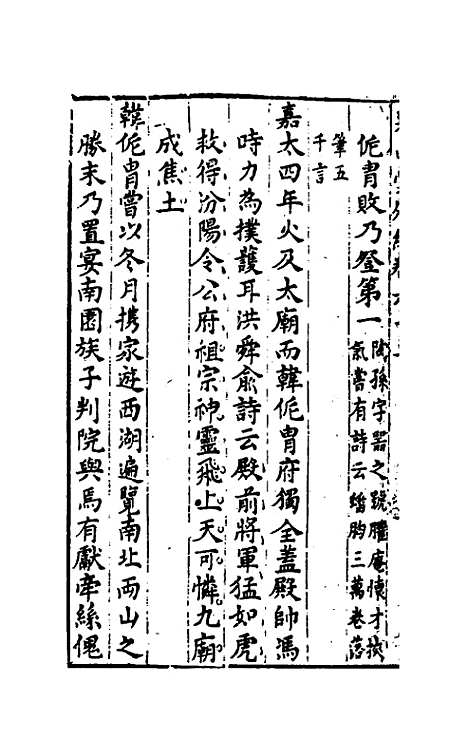 侂冑敗乃登第一陶孫字器之號臞庵懷才挾
氣嘗有詩云蟠胸三萬卷落
筆五
千言
嘉太四年火及太廟而韓侂冑府獨全蓋殿帥馮
時力為撲護耳洪舜俞詩云殿前將軍猛如虎
救得汾陽令公府祖宗神靈飛上天可憐九廟
成焦土
韓侂冑嘗以冬月擕家遊西湖遍覽南北兩山之
勝末乃置宴南園族子判院與焉有獻牽絲傀